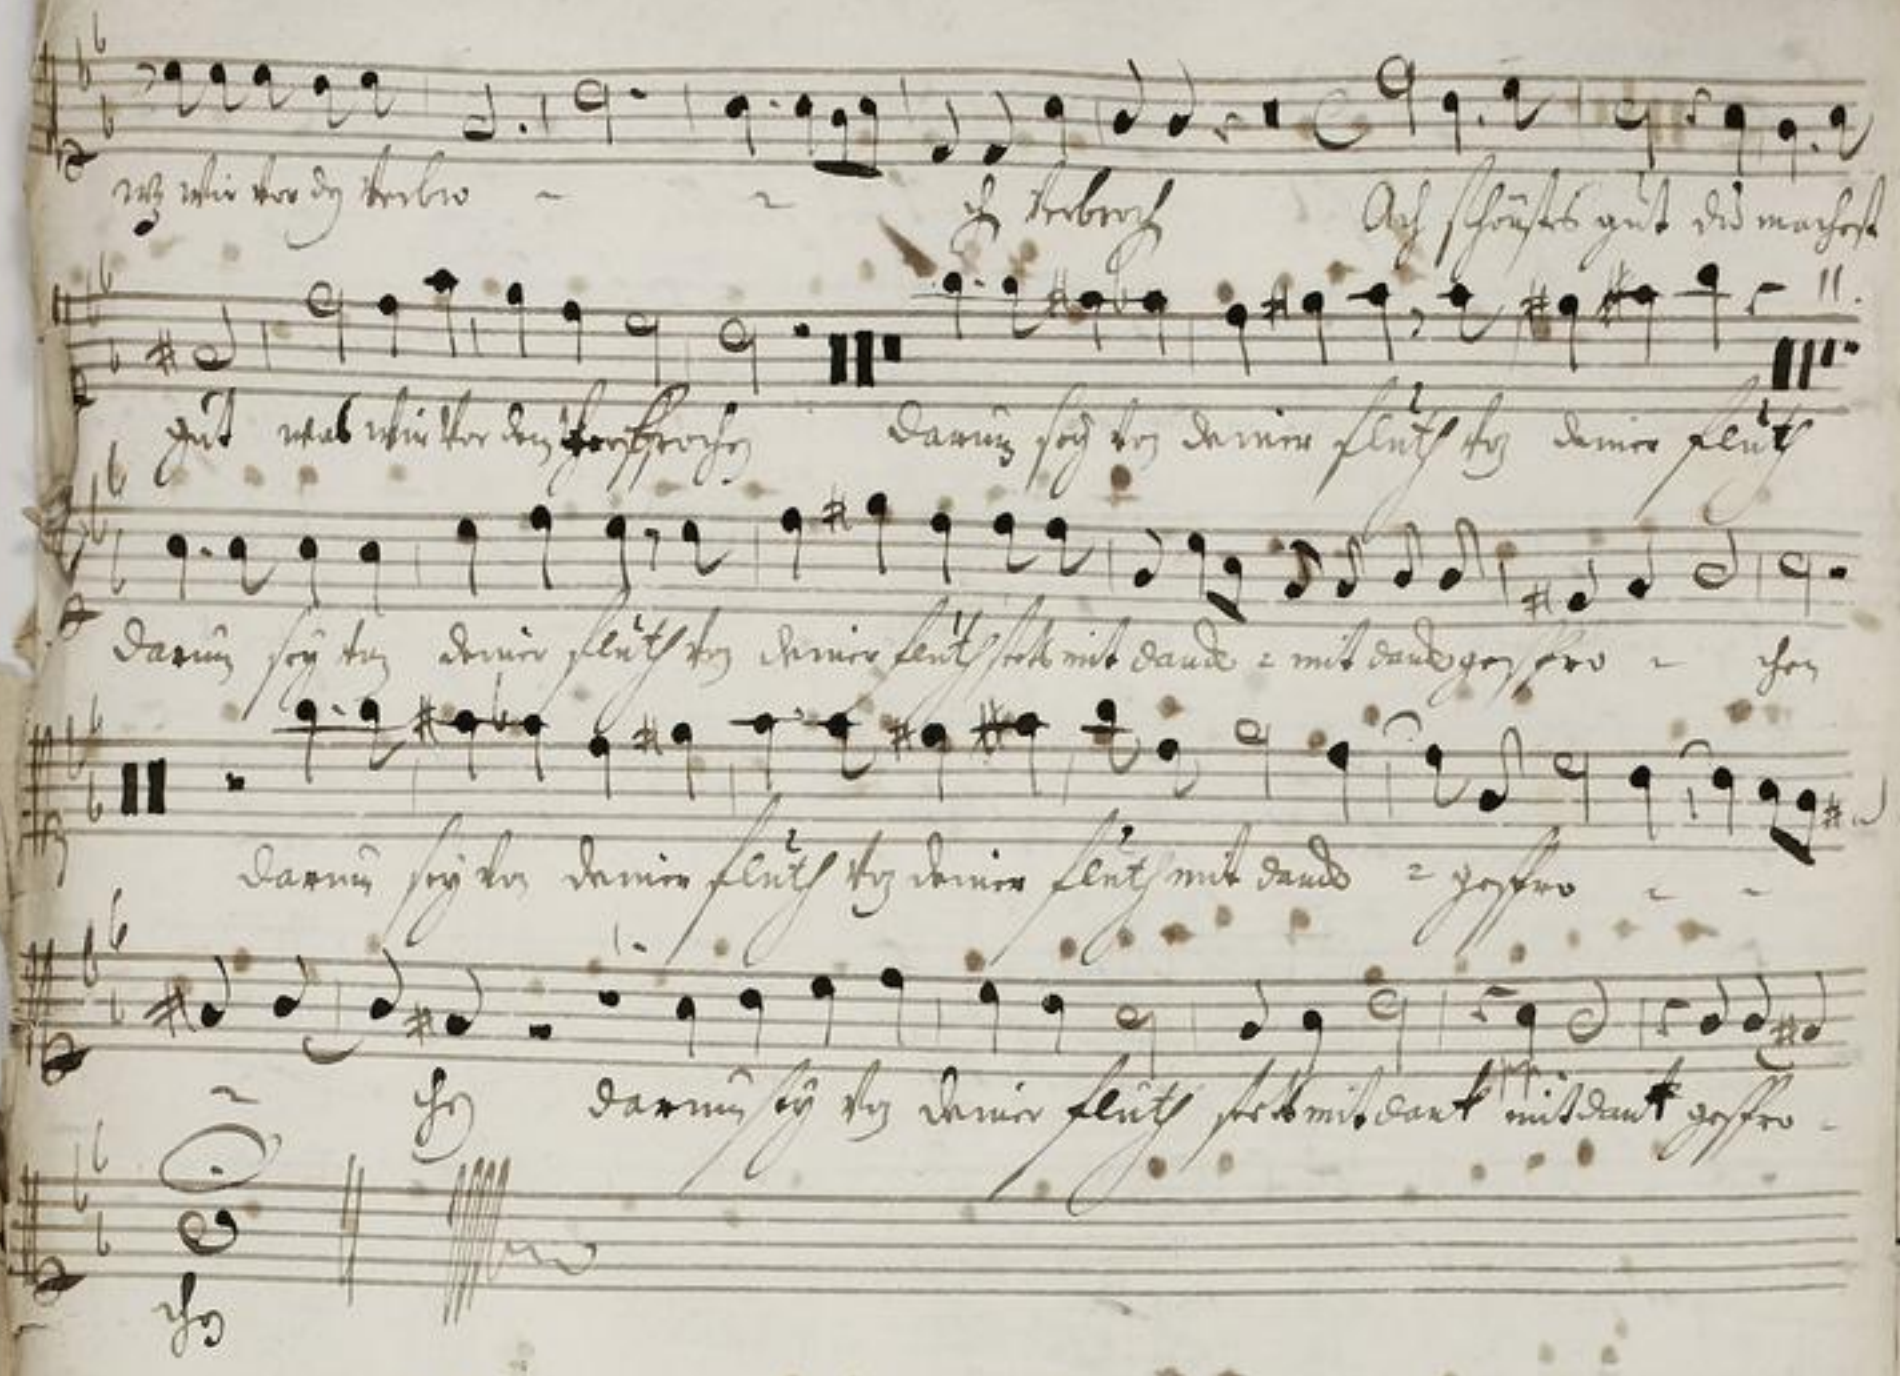 wz wir vor dz verbro - - ch verbroch Ach schönstes gut du machest
gut was wir vor dem versprochen darum sey von deiner fluth von deiner fluth
darum sey von deiner fluth von deiner fluth stets mit danck = mit danck gespro - chen
darum sey von deiner fluth von deiner fluth mit danck = gespro - -
- chen darum sey von deiner fluth stets mit dank mit dank gespro -
chen